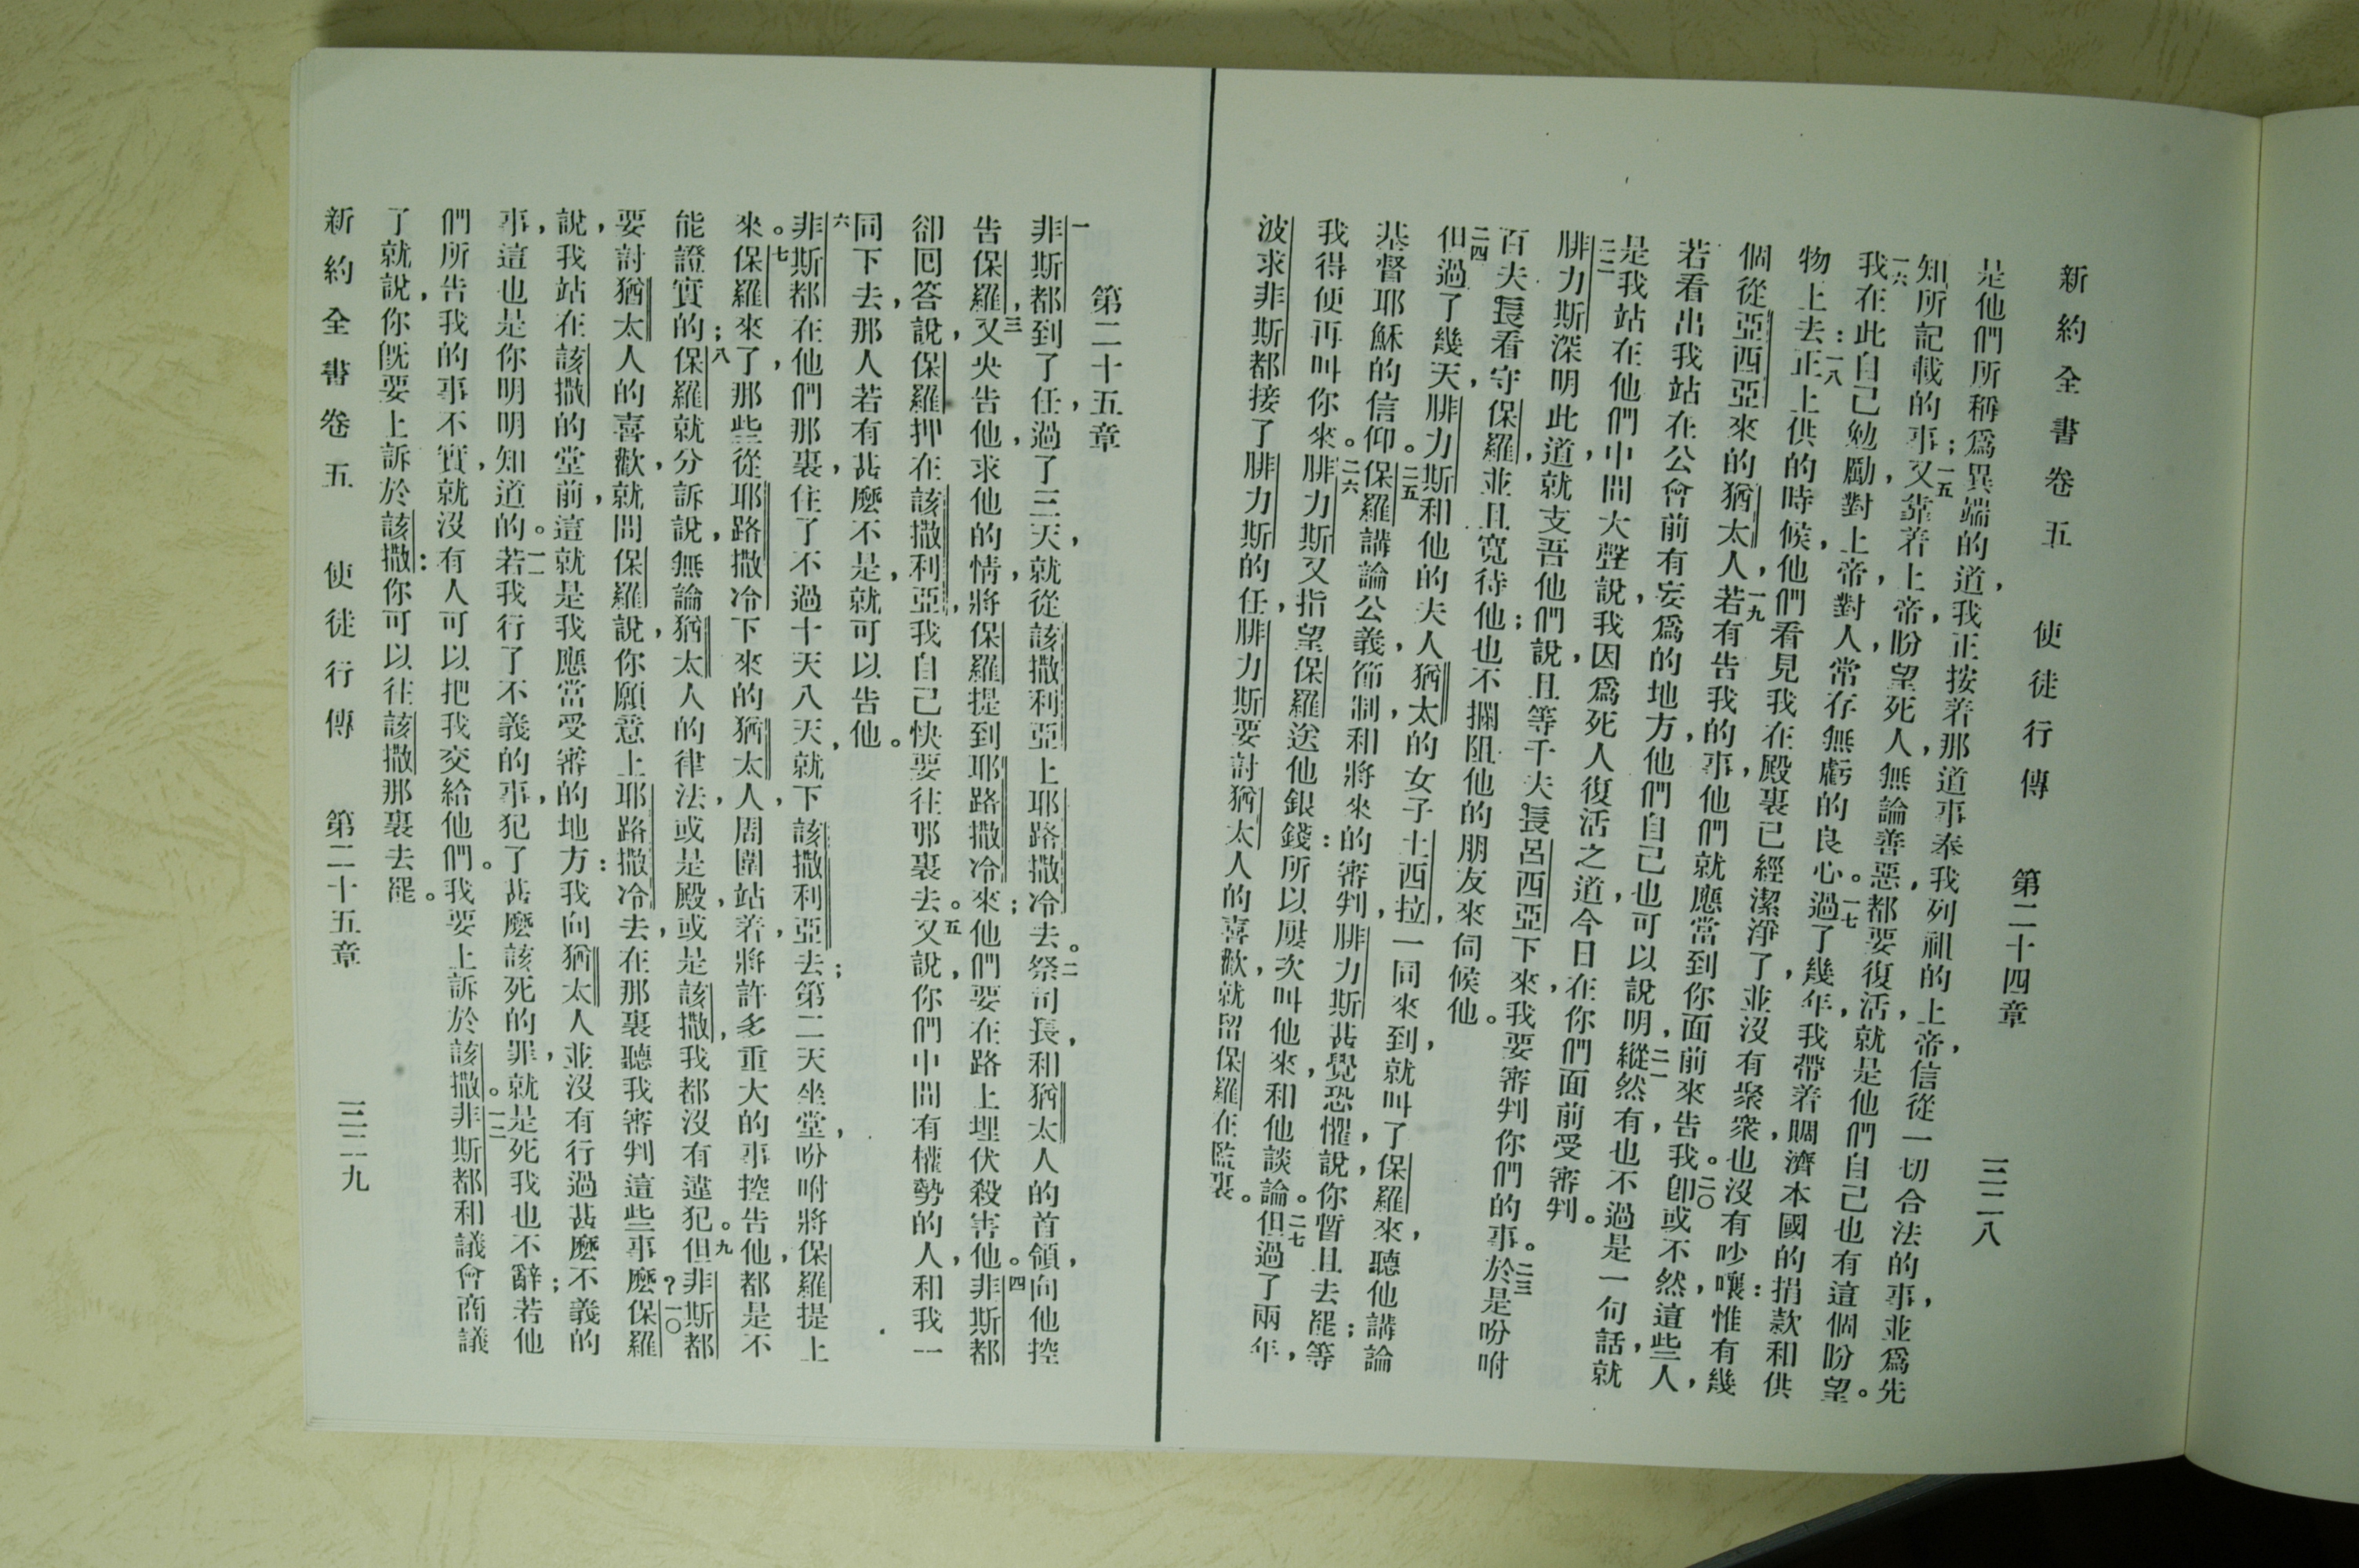 新約全書卷五　使徒行傳　第二十四章　三二八
是他們所稱爲異端的道，我正按着那道事奉我列祖的上帝，信從一切合法的事，並爲先
知所記載的事；一五又靠着上帝，盼望死人，無論善惡，都要復活，就是他們自己也有這個盼望。
一六我在此自己勉勵，對上帝，對人，常存無虧的良心。一七過了幾年，我帶着賙濟本國的捐款和供
物上去：一八正上供的時候，他們看見我在殿裏已經潔淨了，並沒有聚衆，也沒有吵嚷：惟有幾
個從亞西亞來的猶太人，一九若有告我的事，他們就應當到你面前來告我。二〇卽或不然，這些人，
若看出我站在公會前，有妄爲的地方，他們自己也可以說明，二一縱然有，也不過是一句話，就
是我站在他們中間大聲說，我因爲死人復活之道，今日在你們面前受審判。
二二腓力斯深明此道，就支吾他們，說，且等千夫長呂西亞下來，我要審判你們的事。二三於是吩咐
百夫長看守保羅，並且寬待他；也不攔阻他的朋友來伺候他。
二四但過了幾天，腓力斯和他的夫人猶太的女子土西拉，一同來到，就叫了保羅來，聽他講論
基督耶穌的信仰。二五保羅講論公義，節制，和將來的審判，腓力斯甚覺恐懼，說，你暫且去罷；等
我得便再叫你來。二六腓力斯又指望保羅送他銀錢：所以屢次叫他來，和他談論。二七但過了兩年，
波求非斯都接了腓力斯的任，腓力斯要討猶太人的喜歡，就留保羅在監裏。
第二十五章
一非斯都到了任，過了三天，就從該撒利亞上耶路撒冷去。二祭司長，和猶太人的首領，向他控
告保羅，三又央告他，求他的情，將保羅提到耶路撒冷來；他們要在路上埋伏殺害他。四非斯都
卻囘答說，保羅押在該撒利亞，我自己快要往那裏去。五又說，你們中間有權勢的人，和我一
同下去，那人若有甚麼不是，就可以告他。
六非斯都在他們那裏，住了不過十天八天，就下該撒利亞去；第二天坐堂，吩咐將保羅提上
來。七保羅來了，那些從耶路撒冷下來的猶太人，周圍站着，將許多重大的事控告他，都是不
能證實的；八保羅就分訴說，無論猶太人的律法，或是殿，或是該撒，我都沒有違犯。九但非斯都
要討猶太人的喜歡，就問保羅說，你願意上耶路撒冷去，在那裏聽我審判這些事麼？一〇保羅
說，我站在該撒的堂前，這就是我應當受審的地方：我向猶太人並沒有行過甚麼不義的
事，這也是你明明知道的。一一若我行了不義的事，犯了甚麼該死的罪，就是死我也不辭；若他
們所告我的事不實，就沒有人可以把我交給他們。我要上訴於該撒。一二非斯都和議會商議
了，就說，你旣要上訴於該撒：你可以往該撒那裏去罷。
新約全書卷五　使徒行傳　第二十五章　三二九